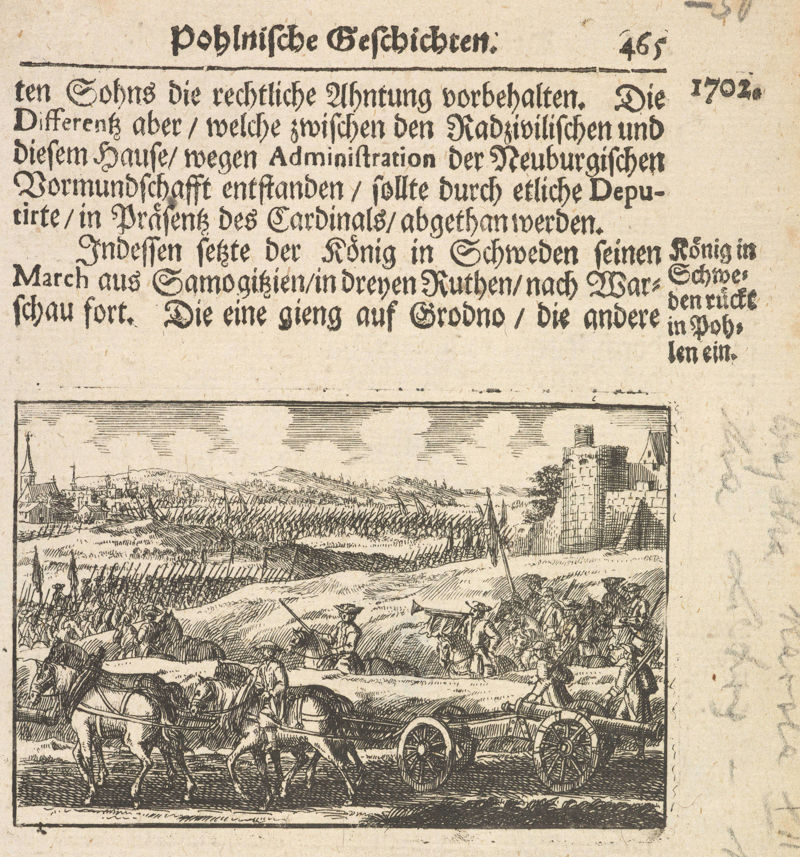 Pohlnische Geschichten. 465
1702.
ten Sohns die rechtliche Ahntung vorbehalten. Die
Differentz aber / welche zwischen den Radzivilischen und
diesem Hause / wegen Administration der Neuburgischen
Vormundschafft entstanden / sollte durch etliche Depu-
tirte / in Präsentz des Cardinals / abgethan werden.
Indessen setzte der König in Schweden seinen
March aus Samogitzien / in dreyen Ruthen / nach War-
schau fort. Die eine gieng auf Grodno / die andere
König in
Schwe-
den rückt
in Poh-
len ein.